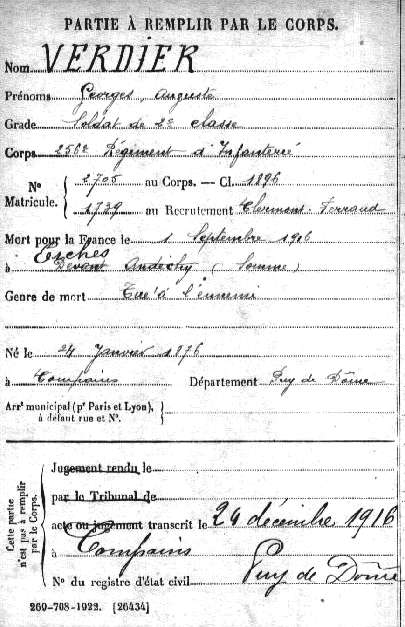 PARTIE À REMPLIR PAR LE CORPS.
Nom VERDIER
Prénoms Georges, Auguste
Grade Soldat de 2e classe
Corps 256e Régiment d'Infanterie
N° Matricule. 2705 au Corps. — Cl. 1896
1739 au Recrutement Clermont Ferrand
Mort pour la France le 1 Septembre 1916
Erches
à Devant Andechy (Somme)
Genre de mort Tué à l'ennemi
Né le 24 Janvier 1876
à Compains Département Puy de Dôme
Arrt municipal (pr Paris et Lyon),
à défaut rue et N°.
Cette partie n'est pas à remplir par le Corps.
Jugement rendu le
par le Tribunal de
acte ou jugement transcrit le 26 décembre 1916
à Compains
Puy de Dôme
N° du registre d'état civil
260-708-1922. [26434]